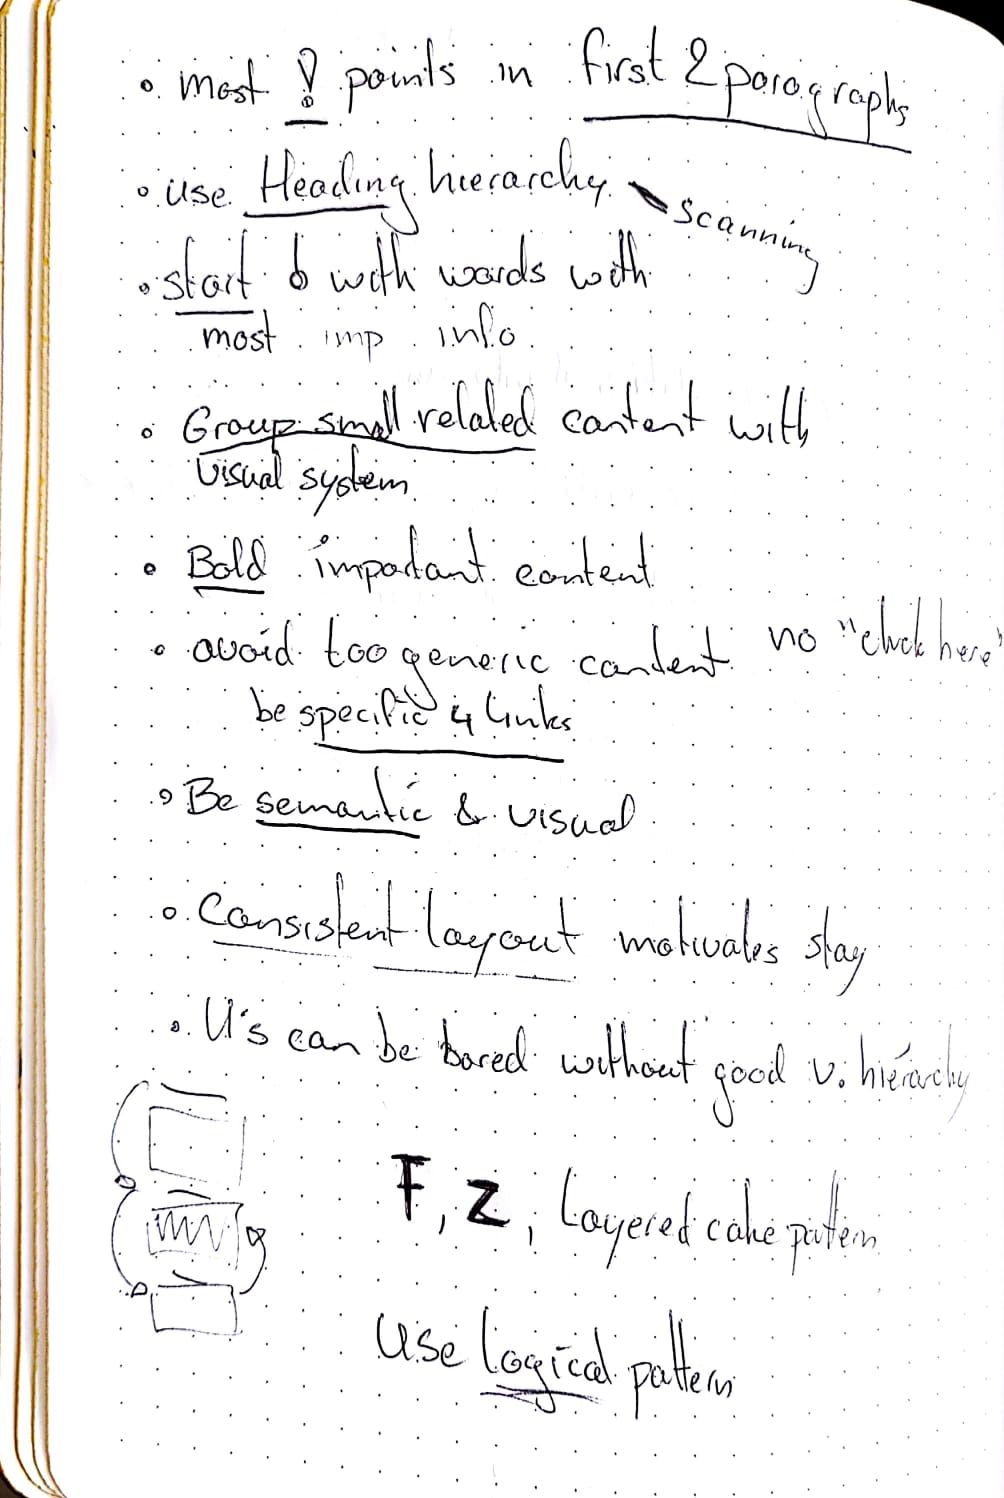 • most ! points in first 2 paragraphs
• use Heading hierarchy
scanning
• start with words with
most imp info.
• Group small related content with
visual system
• Bold important content
• avoid too generic content no "click here"
be specific 4 links
• Be semantic & visual
• Consistent layout motivates stay
• U's can be bored without good v. hierarchy
F, Z, Layered cake pattern
Use logical pattern